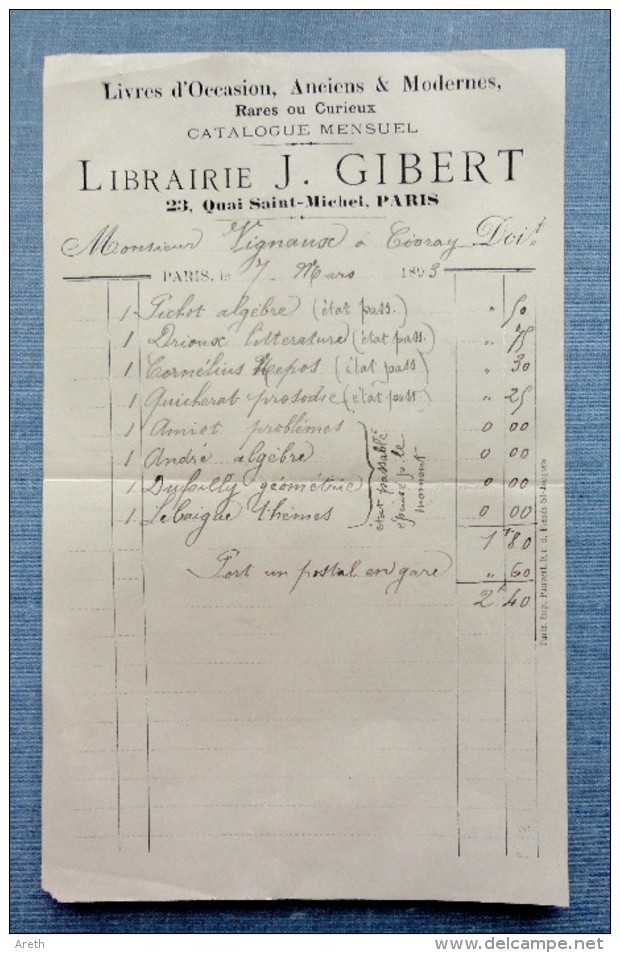 Livres d'Occasion, Anciens & Modernes,
Rares ou Curieux
CATALOGUE MENSUEL
LIBRAIRIE J. GIBERT
23, Quai Saint-Michel, PARIS
Monsieur Vignaux à Civray Doit
PARIS, le 7 Mars 1893
1 Pichot algèbre (état pass.) " 50
1 Drioux littérature (état pass.) " 75
1 Cornélius Nepos (état pass) " 30
1 Quicherat prosodie (état pass) " 25
1 Amiot problèmes 0 00
1 André algèbre 0 00
1 Dufailly géométrie 0 00
1 Lebaigue thèmes 0 00
état passable
épuisé p. le
moment
1 f 80
Port un postal en gare " 60
2 f 40
Paris. Imp. Pairault, b. r. d. Fossés St-Jacques
Areth
www.delcampe.net